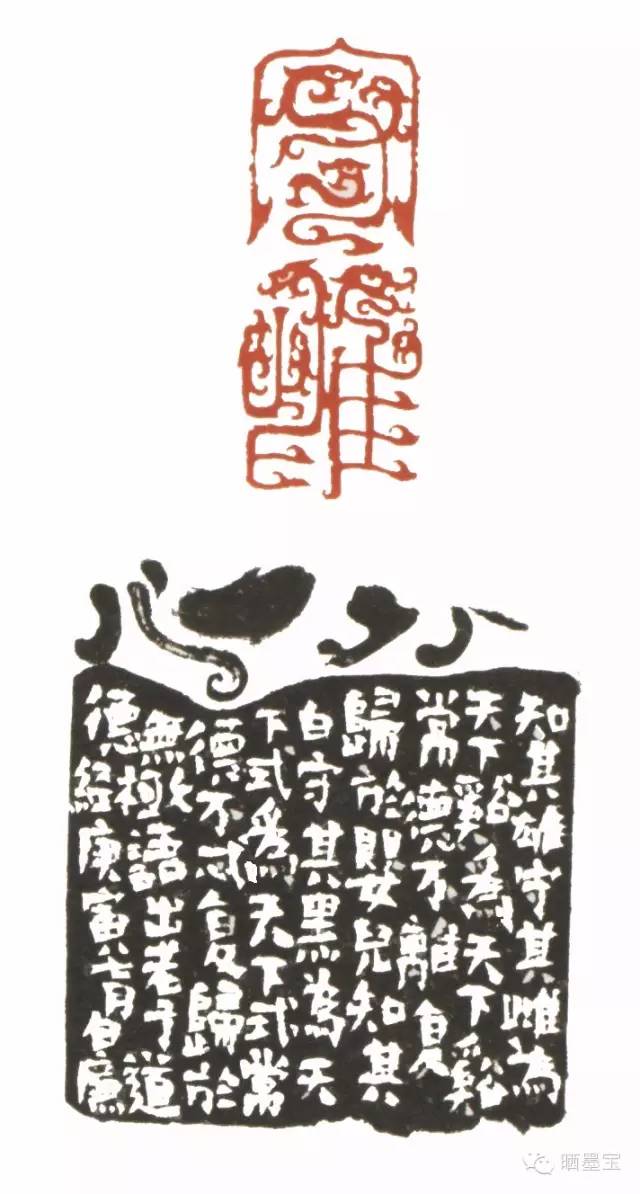 守雌
知其雄守其雌為
天下谿為天下谿
常德不離復
歸於嬰兒知其
白守其黑為天
下式為天下式常
德不忒復歸於
無極語出老子道
德經庚寅七月
晒墨宝